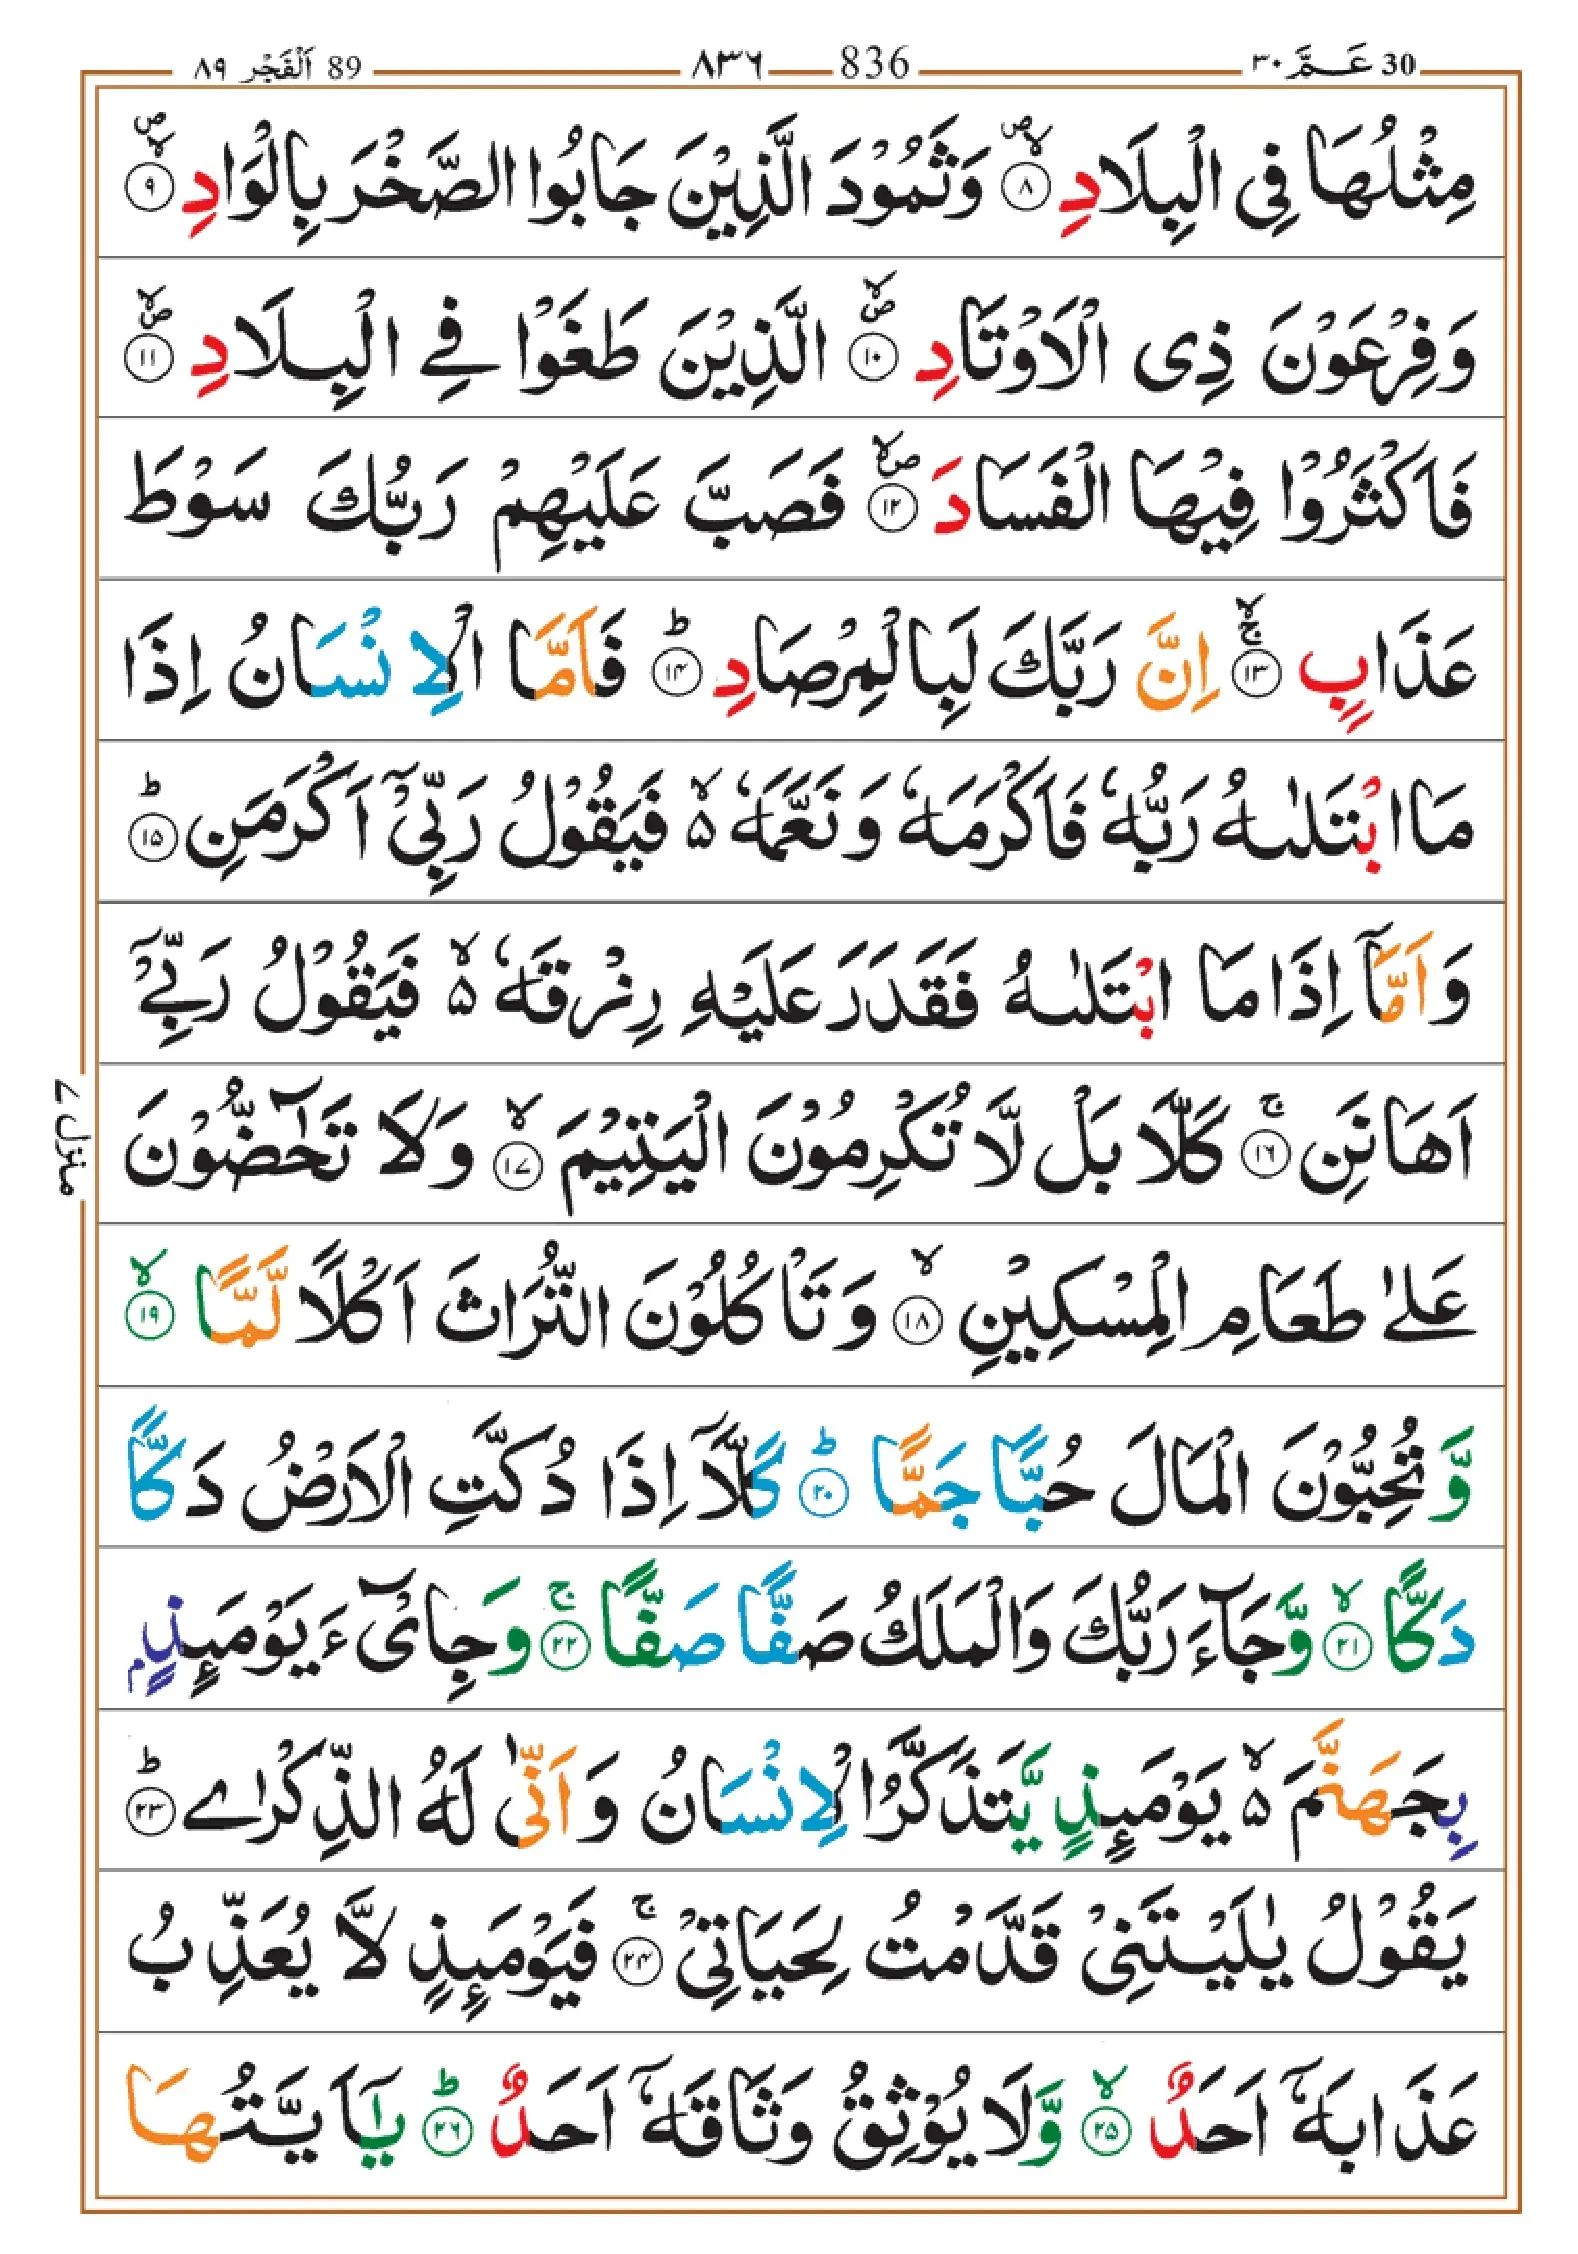 30 عَـمَّ ٣٠ 836 ٨٣٦ 89 اَلْفَجْر ٨٩
مِثْلُهَا فِی الْبِلَادِ ۪ۙ‏﴿۸﴾ وَثَمُوْدَ الَّذِیْنَ جَابُوا الصَّخْرَ بِالْوَادِ ۪ۙ‏﴿۹﴾
وَفِرْعَوْنَ ذِی الْاَوْتَادِ ۪ۙ‏﴿۱۰﴾ الَّذِیْنَ طَغَوْا فِے الْبِلَادِ ۪ۙ‏﴿۱۱﴾
فَاَکْثَرُوْا فِیْهَا الْفَسَادَ ۪ۙ‏﴿۱۲﴾ فَصَبَّ عَلَیْهِمْ رَبُّكَ سَوْطَ
عَذَابٍ ۚۙ‏﴿۱۳﴾ اِنَّ رَبَّكَ لَبِالْمِرْصَادِ ؕ‏﴿۱۴﴾ فَاَمَّا الْاِنْسَانُ اِذَا
مَا ابْتَلٰىهُ رَبُّهٗ فَاَكْرَمَهٗ وَ نَعَّمَهٗ ۙ۵ فَیَقُوْلُ رَبِّیْۤ اَكْرَمَنِ ؕ‏﴿۱۵﴾
وَ اَمَّاۤ اِذَا مَا ابْتَلٰىهُ فَقَدَرَ عَلَیْهِ رِزْقَهٗ ۙ۵ فَیَقُوْلُ رَبِّےْۤ
اَهَانَنِ ۚ‏﴿۱۶﴾ كَلَّا بَلْ لَّا تُكْرِمُوْنَ الْیَتِیْمَ ۙ‏﴿۱۷﴾ وَلَا تَحٰٓضُّوْنَ
عَلٰے طَعَامِ الْمِسْكِیْنِ ۙ‏﴿۱۸﴾ وَ تَاْكُلُوْنَ التُّرَاثَ اَكْلًا لَّمًّا ۙ‏﴿۱۹﴾
وَّ تُحِبُّوْنَ الْمَالَ حُبًّا جَمًّا ؕ‏﴿۲۰﴾ كَلَّاۤ اِذَا دُكَّتِ الْاَرْضُ دَكًّا
دَكًّا ۙ‏﴿۲۱﴾ وَّ جَآءَ رَبُّكَ وَالْمَلَكُ صَفًّا صَفًّا ۚ‏﴿۲۲﴾ وَ جِایْٓءَ یَوْمَئِذٍۭ
بِجَهَنَّمَ ۙ۵ یَوْمَئِذٍ یَّتَذَكَّرُ الْاِنْسَانُ وَ اَنّٰی لَهُ الذِّكْرٰے ؕ‏﴿۲۳﴾
یَقُوْلُ یٰلَیْتَنِیْ قَدَّمْتُ لِحَیَاتِیْ ۚ‏﴿۲۴﴾ فَیَوْمَئِذٍ لَّا یُعَذِّبُ
عَذَابَهٗۤ اَحَدٌ ۙ‏﴿۲۵﴾ وَّ لَا یُوْثِقُ وَثَاقَهٗۤ اَحَدٌ ؕ‏﴿۲۶﴾ یٰۤاَیَّتُهَا
منزل ۷